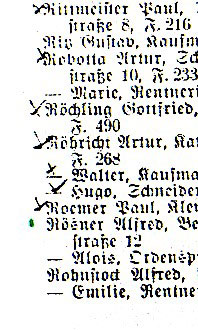 Rittmeister Paul,
straße 8, F. 216
Rix Gustav, Kaufm
Robotta Artur, Sch
straße 10, F. 233
— Marie, Rentneri
Röchling Gottfried,
F. 490
Röhricht Artur, Kau
F. 268
— Walter, Kaufma
— Hugo, Schneider
Roemer Paul, Kle
Rösner Alfred, Be
straße 12
— Alois, Ordensp
Rohnstock Alfred,
— Emilie, Rentne